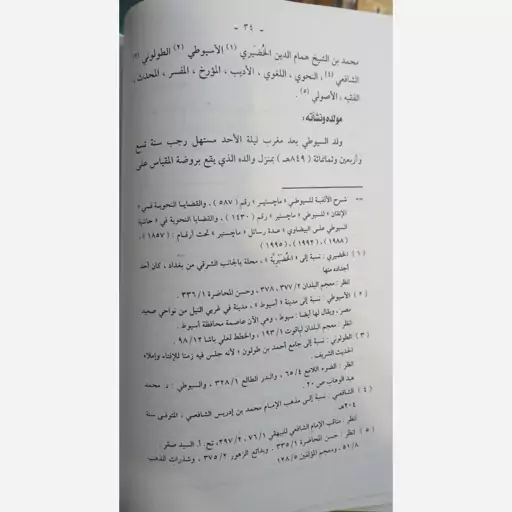 - ٣٤ -
محمد بن الشيخ همام الدين الخُضَيري (١) الأسيوطي (٢) الطولوني (٣)
الشافعي (٤) ، النحوي ، اللغوي ، الأديب ، المؤرخ ، المفسر ، المحدث ،
الفقيه ، الأصولي (٥) .
مولده ونشأته:
ولد السيوطي بعد مغرب ليلة الأحد مستهل رجب سنة تسع
وأربعين وثمانمائة (٨٤٩هـ) بمنزل والده الذي يقع بروضة المقياس على
== شرح الألفية للسيوطي « ماجستير » رقم (٥٨٧) ، والقضايا النحوية في «
الإتقان » للسيوطي « ماجستير » رقم (١٤٣٠) ، والقضايا النحوية في « حاشية
السيوطي على البيضاوي » عدة رسائل « ماجستير » تحت أرقام : (١٨٥٧) ،
(١٩٨٨) ، (١٩٩٢) ، (١٩٩٥) .
(١) الخضيري : نسبة إلى « الخُضَيْرِيَّة » ، محلة بالجانب الشرقي من بغداد ، كان أحد
أجداده منها
انظر : معجم البلدان ٣٧٧/٢ ، ٣٧٨ ، وحسن المحاضرة ٣٣٦/١ .
(٢) الأسيوطي : نسبة إلى مدينة « أسيوط » ، مدينة في غربي النيل من نواحي صعيد
مصر ، ويقال لها أيضا : سيوط ، وهي الآن عاصمة محافظة أسيوط .
انظر : معجم البلدان لياقوت ١٩٣/١ ، والخطط لعلي باشا ٩٨/١٢ .
(٣) الطولوني : نسبة إلى جامع أحمد بن طولون ؛ لأنه جلس فيه زمنا للإفتاء وإملاء
الحديث الشريف .
انظر : الضوء اللامع ٦٥/٤ ، والبدر الطالع ٣٢٨/١ ، والسيوطي : د. محمد
عبد الوهاب ص ٢٠ .
(٤) الشافعي : نسبة إلى مذهب الإمام محمد بن إدريس الشافعي ، المتوفى سنة
٢٠٤هـ
انظر : مناقب الإمام الشافعي للبيهقي ٧٦/١ ، ٣٩٧/٢ ، تح : أ. السيد صقر
(٥) انظر : حسن المحاضرة ٣٣٥/١ ، وبدائع الزهور ٣٧٥/٢ ، وشذرات الذهب
٥١/٨ ، ومعجم المؤلفين ١٢٨/٥